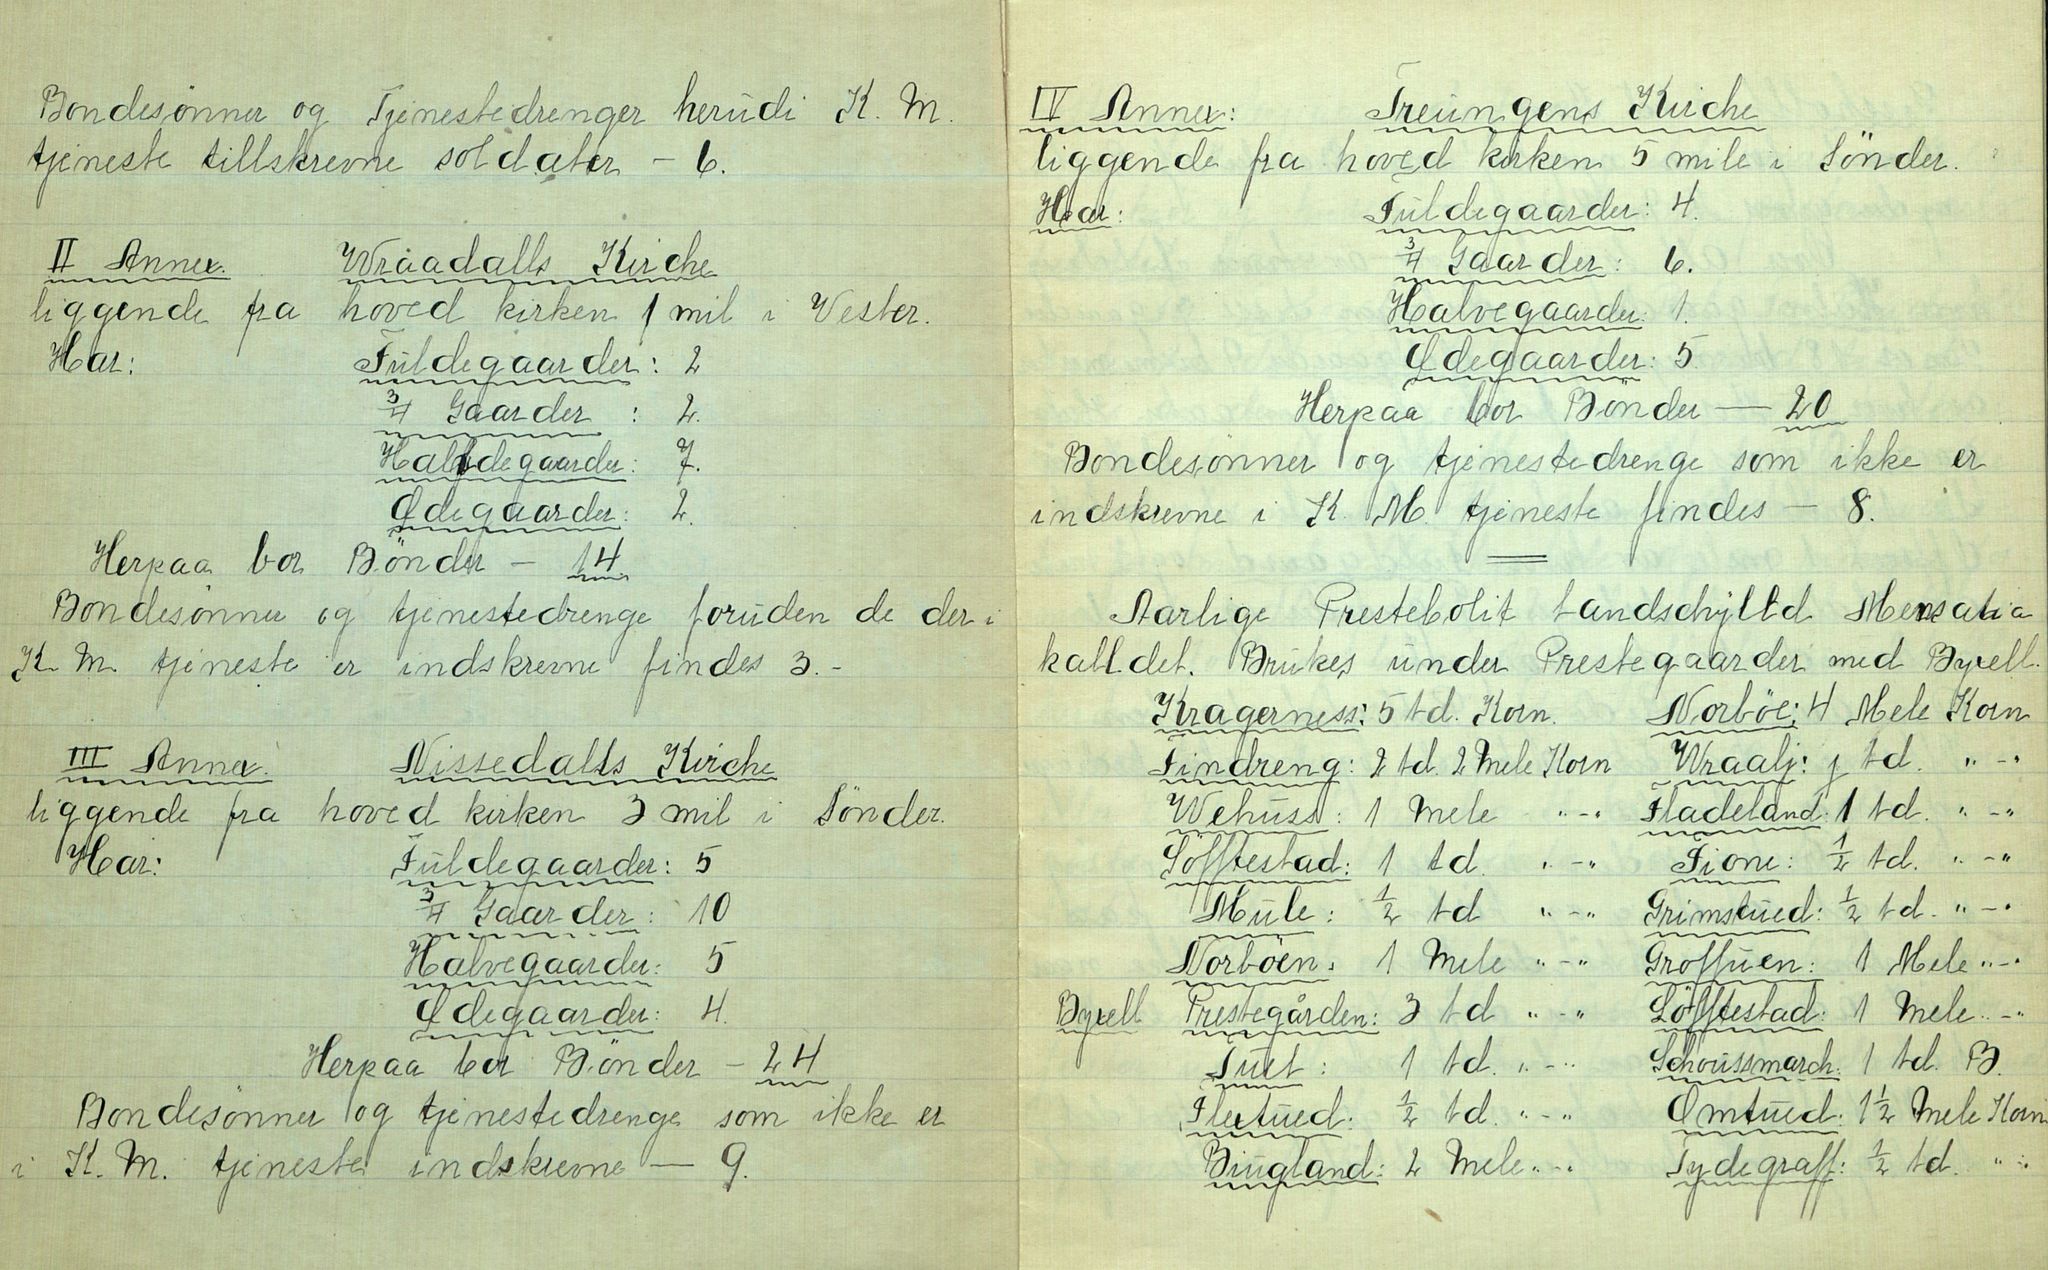 Bondesønner og Tjenestedrenger herudi K. M.
tjeneste tillskrevne soldater - 6.
II Annex. Wraadalls Kirche
liggende fra hoved kirken 1 mil i Vester.
Har: Fuldegaarder: 2
3/4 Gaarder : 2.
Halvdegaarder: 7.
Ødegaarder: 2.
Herpaa bor Bönder - 14
Bondesønner og tjenestedrenge foruden de der i
K. M. tjeneste er indskrevne findes 3.-
III Annex. Nissedalls Kirche
liggende fra hoved kirken 3 mil i Sönder.
Har: Fuldegaarder: 5
3/4 Gaarder: 10
Halvegaarder: 5
Ødegaarder: 4.
Herpaa bor Bönder - 24
Bondesønner og tjenestedrenge som ikke er
i K. M. tjeneste indskrevne - 9.
IV Annex: Treungens Kirche
liggende fra hoved kirken 5 mile i Sönder.
Har: Fuldegaarder: 4.
3/4 Gaarder: 6.
Halvegaarder: 1.
Ødegaarder: 5.
Herpaa bor Bönder - 20
Bondesønner og tjenestedrenge som ikke er
indskrevne i K. M. tjeneste findes - 8.
Aarlige Prestebolit Landschylld Mensalia
kalldet. Brukes under Prestegaarder med Byxell.
Kragerness: 5 td. Korn. Norböe: 4 Mele Korn
Findreng: 2 td. 2 Mele Korn Wraalj: j td. " - "
Wehuss: 1 Mele " - " Fladeland: 1 td. " - "
Söfftestad: 1 td. " - " Fione: 1/2 td. " - "
Mule: 1/2 td " - " Grimstued: 1/2 td. " - "
Norböen: 1 Mele " - " Groffuen: 1 Mele " - "
Byxell Prestegården: 3 td " - " Söfftestad: 1 Mele " - "
Tuet: 1 td. " - " Schoussmarch: 1 td. B.
Flextued: 1/2 td. " - " Omtued: 1 1/2 Mele Korn
Biugland: 2 Mele " - " Tydegraff: 1/2 td. " - "